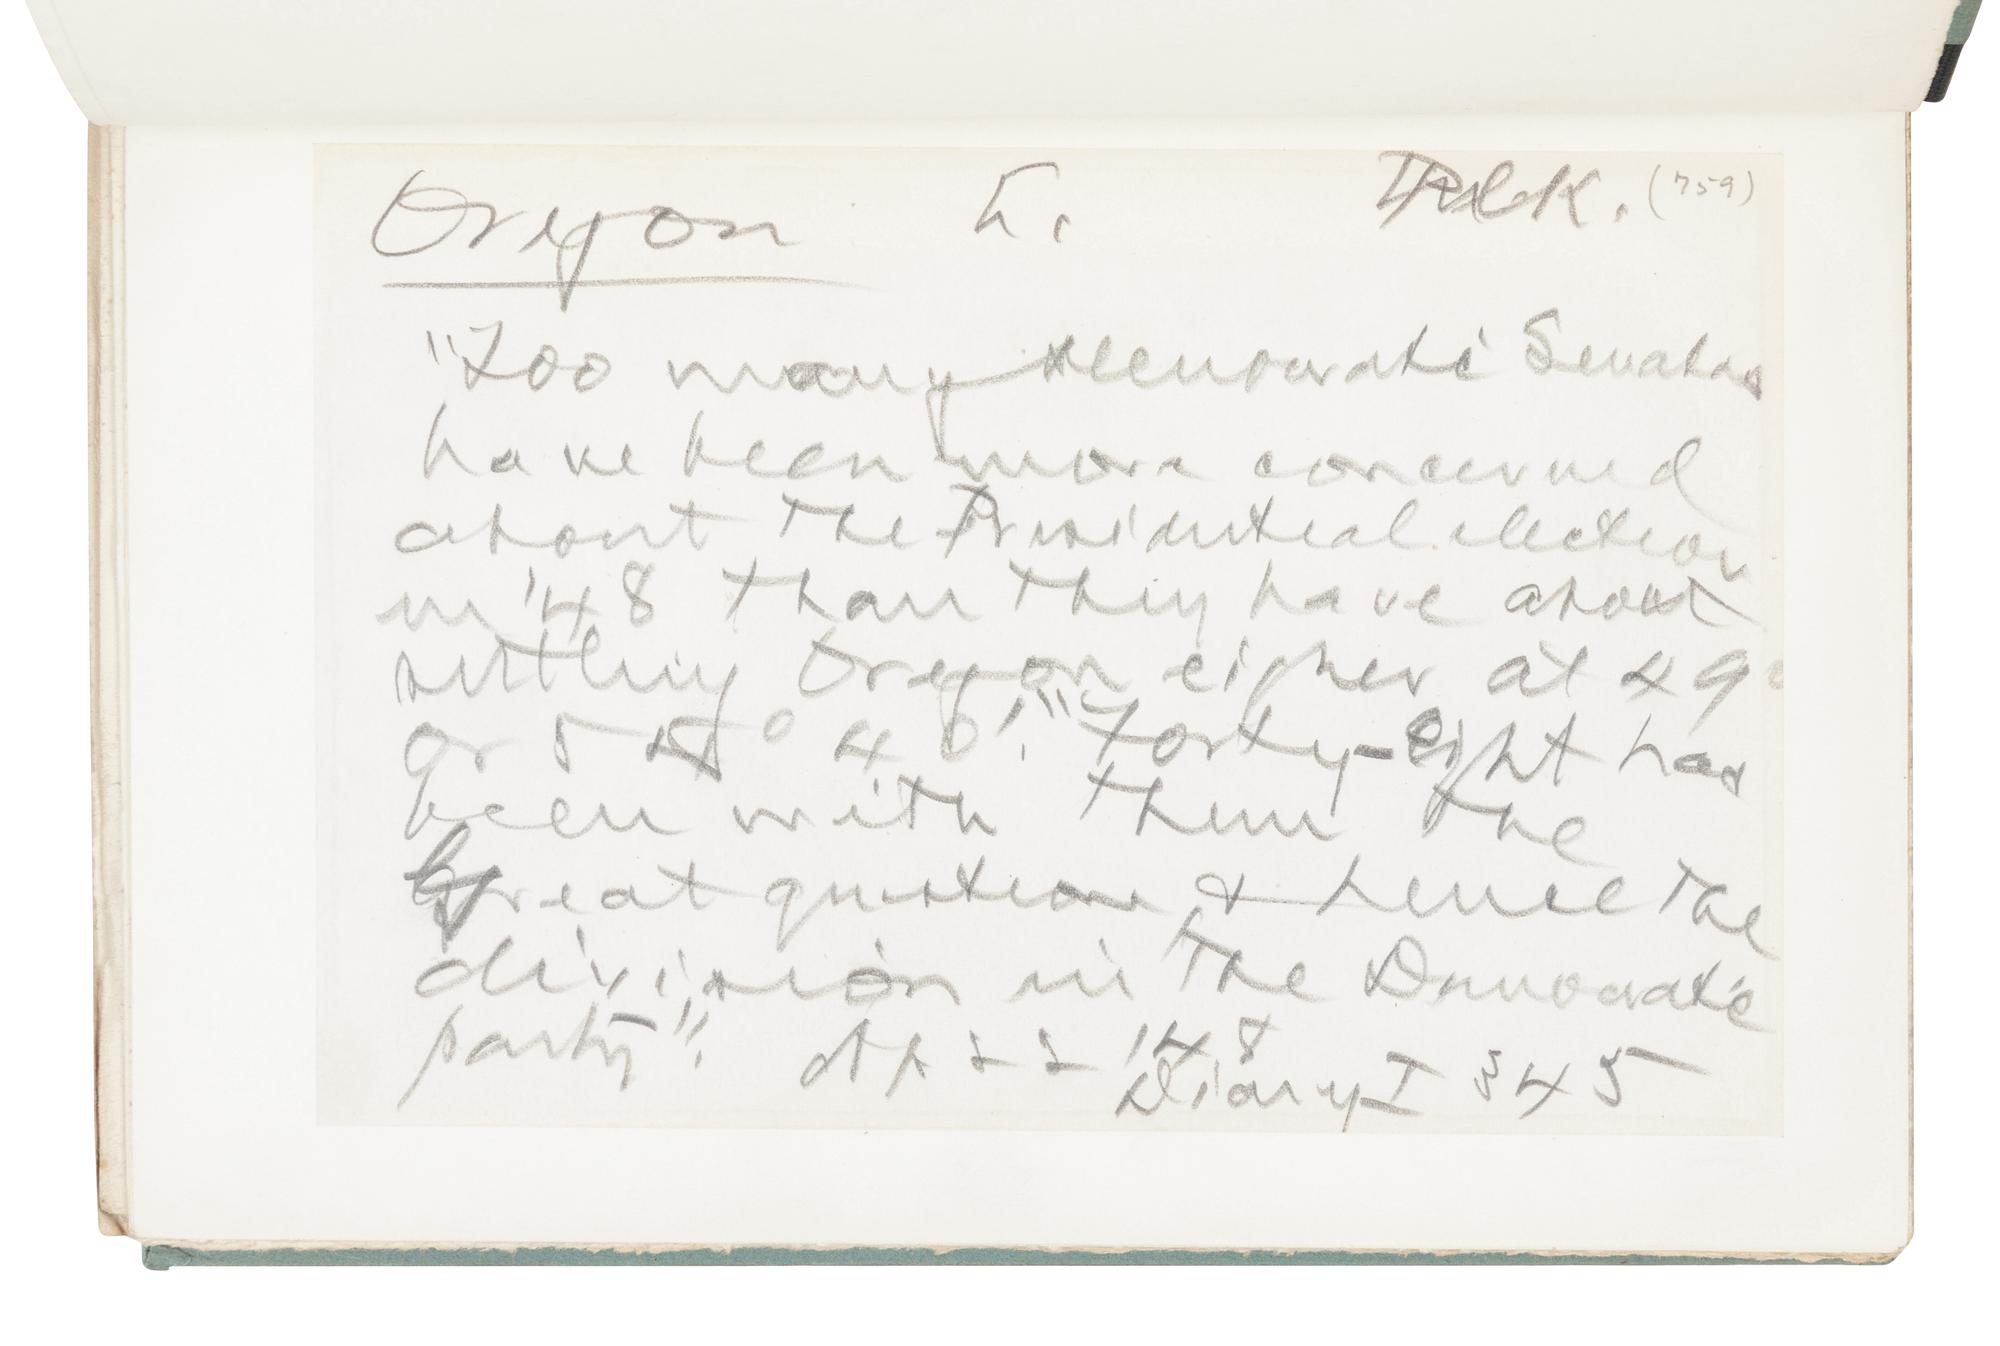 Oregon 5. Polk. (759)
"Too many Democratic Senators
have been more concerned
about the Presidential election
in '48 than they have about
settling Oregon eigher at 49°
or 54° 40'. "Forty-eight has
been with them the
Great question & hence the
division in the Democratic
party". Ap 22 '48
Diary I 345